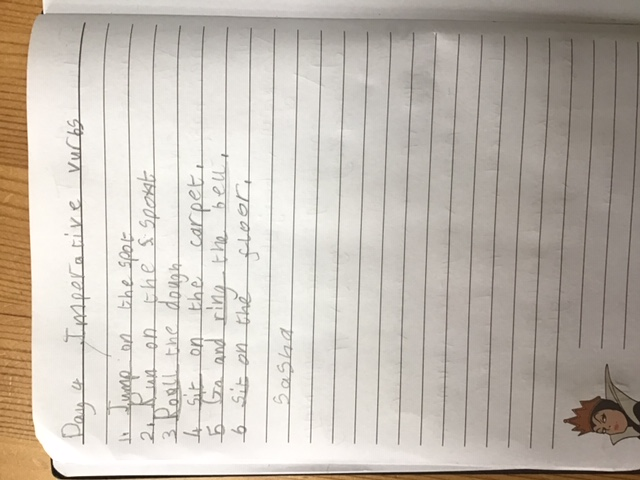 Day 4 Imperative vurbs
1. Jump on the spot
2. Run on the spost
3 Roall the dough
4 Sit on the carpet.
5 Go and ring the bell.
6 Sit on the floor.
Sasha